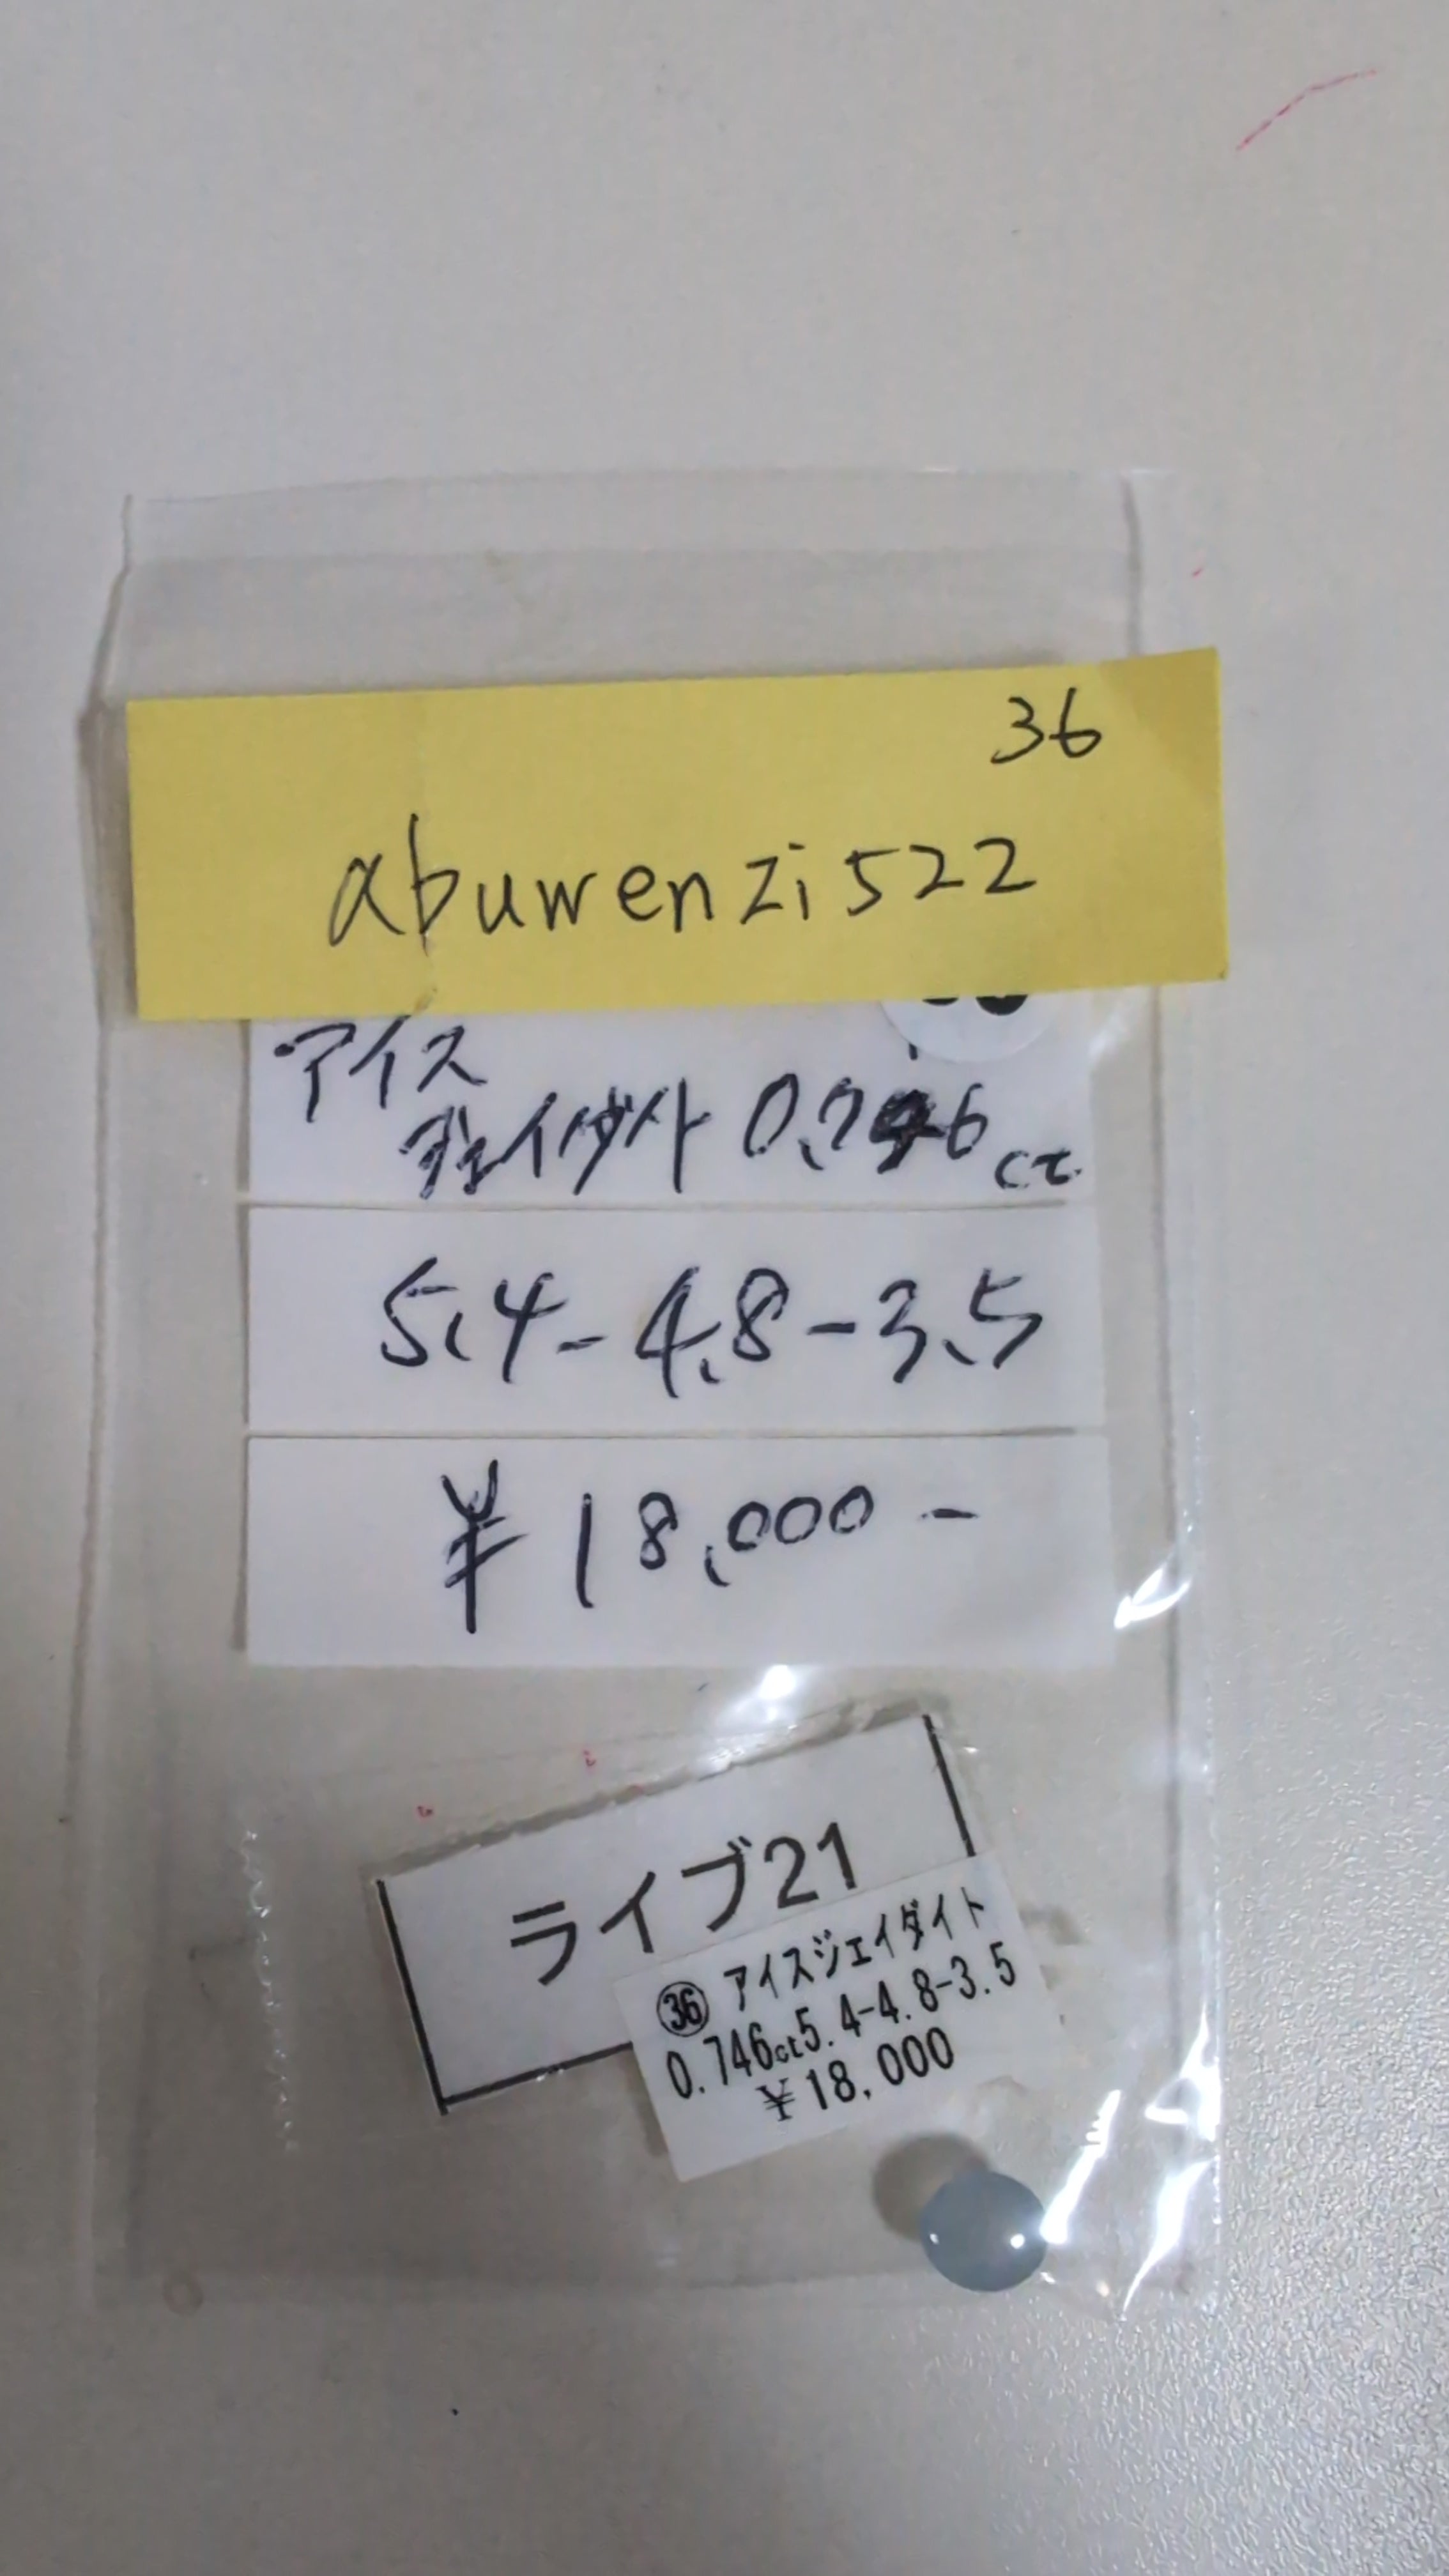 36
abuwenzi522
アイス
ジェイダイト 0.746ct
5.4-4.8-3.5
¥18,000-
ライブ21
㊱ アイスジェイダイト
0.746ct5.4-4.8-3.5
¥18,000